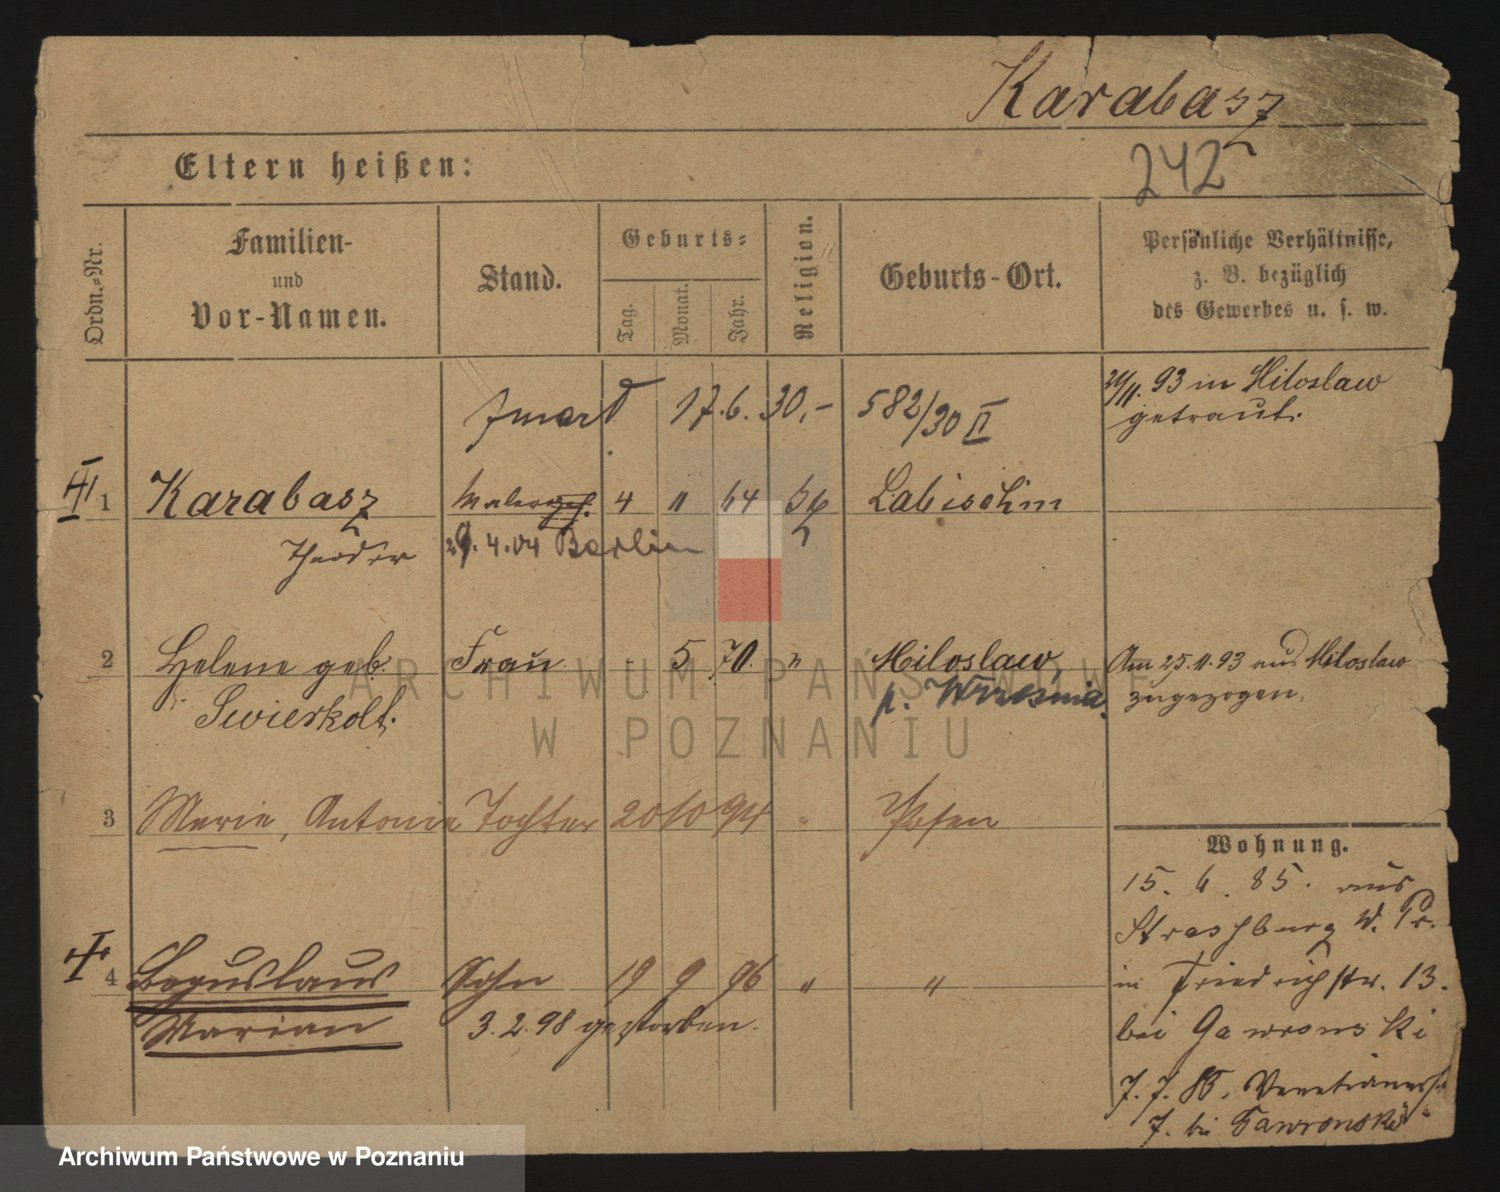 Karabasz
242
Eltern heißen:
Ordn.-Nr.
Familien-
und
Vor-Namen.
Stand.
Geburts-
Tag.
Monat.
Jahr.
Religion.
Geburts-Ort.
Persönliche Verhältnisse,
z. B. bezüglich
des Gewerbes u. s. w.
17.6.30,- 582/30 II
93 in Miloslaw
getraut.
1 Karabasz Malergeh. 4 11 64 Labischin
Theodor 29.4.04 Berlin
2 Helene geb. Frau - 5 70. " Miloslaw Am 25.11.93 aus Miloslaw
Swierkolt. p. Września. zugezogen.
3 Marie, Antonie Tochter 20 10 94 " Posen
4 Boguslaus Sohn 19 9 96 " "
Marian 3.2.98 gestorben.
Wohnung.
15. 6. 85. aus
Strassburg W. Pr.
in Friedrichstr. 13.
bei Gawronski
7. 7. 85. Venetianerstr.
7. bei Gawronski
ARCHIWUM PAŃSTWOWE
W POZNANIU
Archiwum Państwowe w Poznaniu